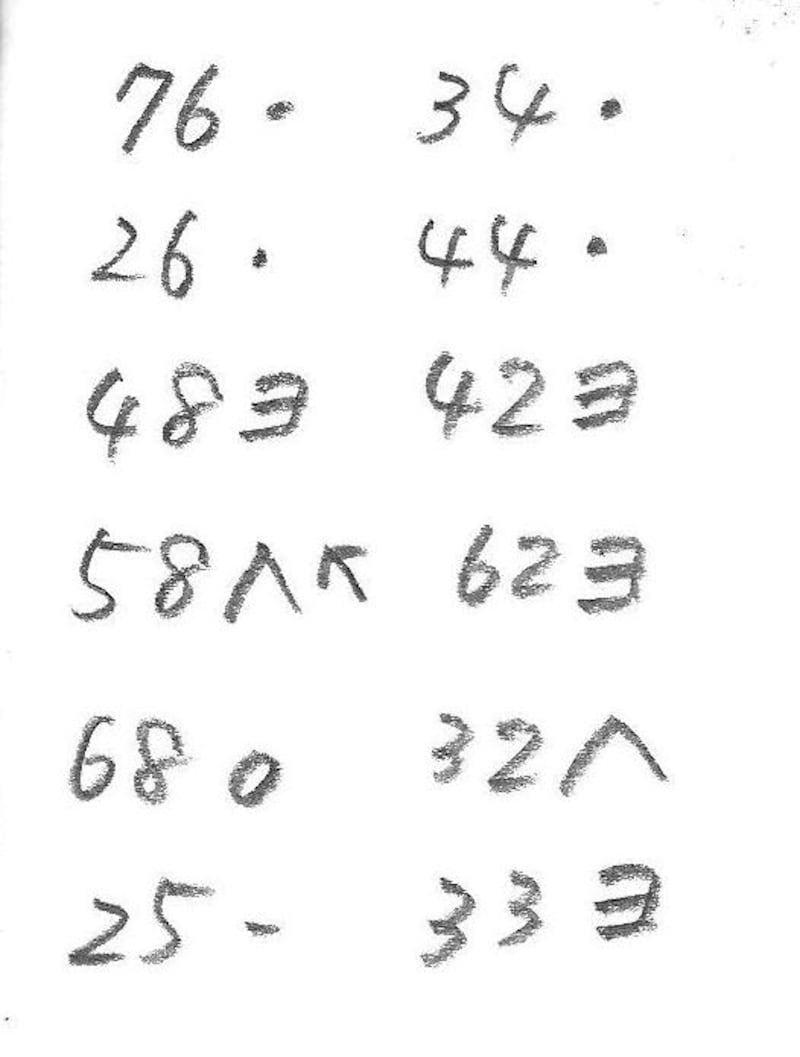 76・ 34・
26・ 44・
48ヨ 42ヨ
58へ 62ヨ
68o 32へ
25- 33ヨ